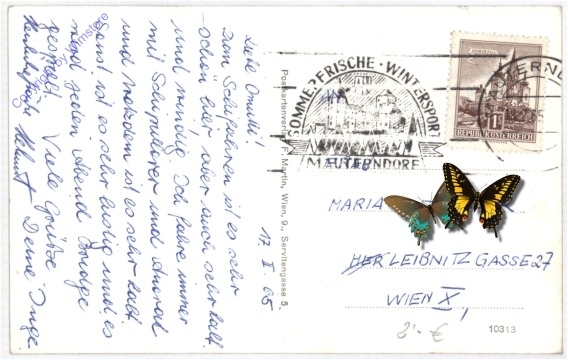 17. I. 65
Liebe Omutti!
Zum Schifahren ist es sehr
schön hier aber auch sehr kalt
und windig. Ich fahre immer
mit Schipullover und Anorak
und trotzdem ist es sehr kalt.
Sonst ist es sehr lustig und es
wird jeden Abend Bridge
gespielt. Viele Grüße
Helmut Deine Inge
Postkartenverlag F. Martin, Wien, 9., Servitengasse 5
SOMMERFRISCHE · WINTERSPORT
MAUTERNDORF
REPUBLIK ÖSTERREICH
MARIA
LEIBNITZGASSE 27
WIEN X,
2,- €
10313